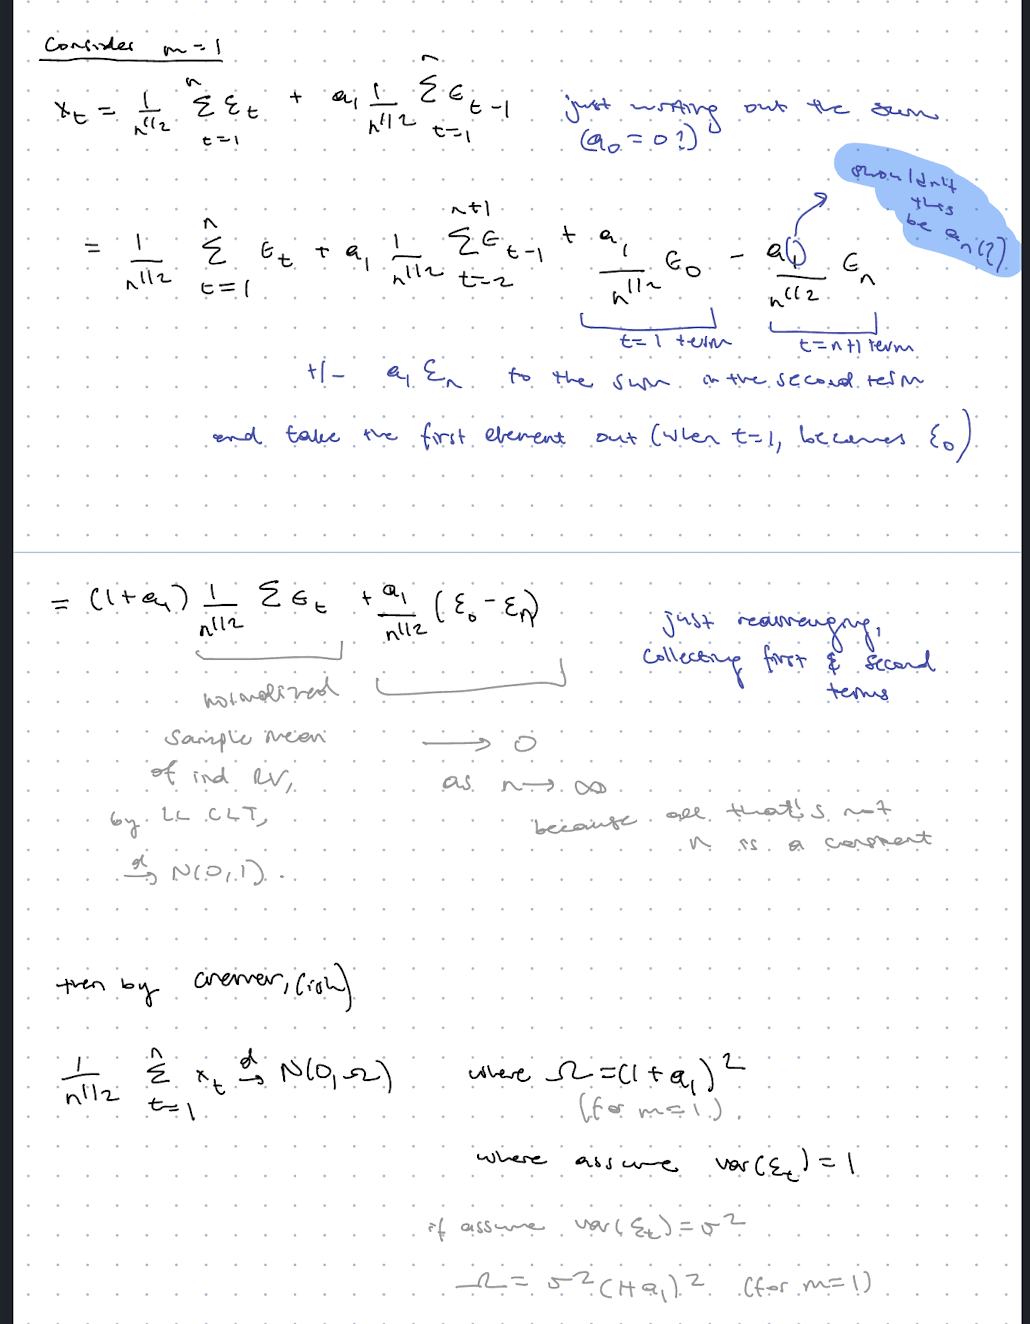 Consider m = 1
x_t = 1/n^{1/2} Σ_{t=1}^{n} ε_t + a_1 1/n^{1/2} Σ_{t=1}^{n} ε_{t-1} just writing out the sum
(a_0 = 0?)
shouldn't
this
be a_n(?)
= 1/n^{1/2} Σ_{t=1}^{n} ε_t + a_1 1/n^{1/2} Σ_{t=2}^{n+1} ε_{t-1} + a_1/n^{1/2} ε_0 - a_1/n^{1/2} ε_n
t=1 term t=n+1 term
+/- a_1 ε_n to the sum in the second term
and take the first element out (when t=1, becomes ε_0)
= (1+a_1) 1/n^{1/2} Σ ε_t + a_1/n^{1/2} (ε_0 - ε_n)
just rearranging,
collecting first & second
terms
normalized
sample mean
of ind RV,
by LL CLT,
→^d N(0,1).
→ 0
as n → ∞
because all that's not
n is a constant
then by cramer, (ish)
1/n^{1/2} Σ_{t=1}^{n} x_t →^d N(0,Ω) where Ω = (1+a_1)^2
(for m=1).
where assume var(ε_t) = 1
if assume var(ε_t) = σ^2
Ω = σ^2 (1+a_1)^2 (for m=1)